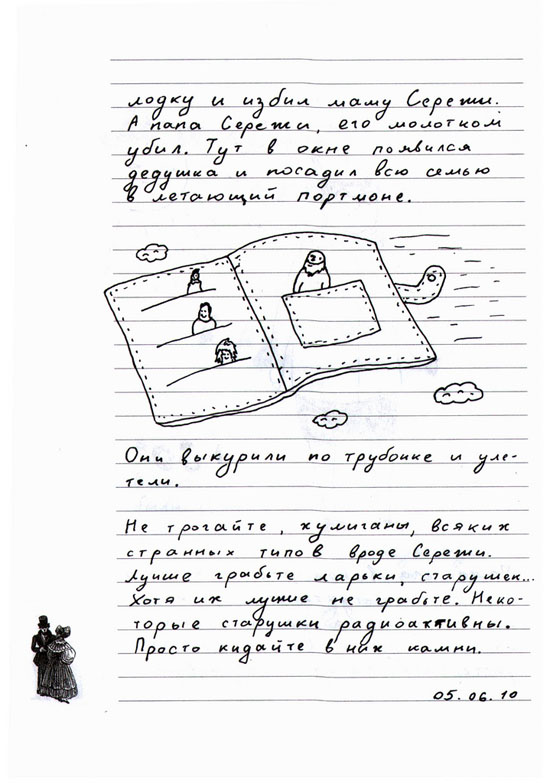 лодку и избил маму Сережи.
А папа Сережи, его молотком
убил. Тут в окне появился
дедушка и посадил всю семью
в летающий портмоне.
Они выкурили по трубочке и уле-
тели.
Не трогайте, хулиганы, всяких
странных типов вроде Сережи.
Лучше грабьте ларьки, старушек...
Хотя их лучше не грабьте. Неко-
торые старушки радиоактивны.
Просто кидайте в них камни.
05.06.10